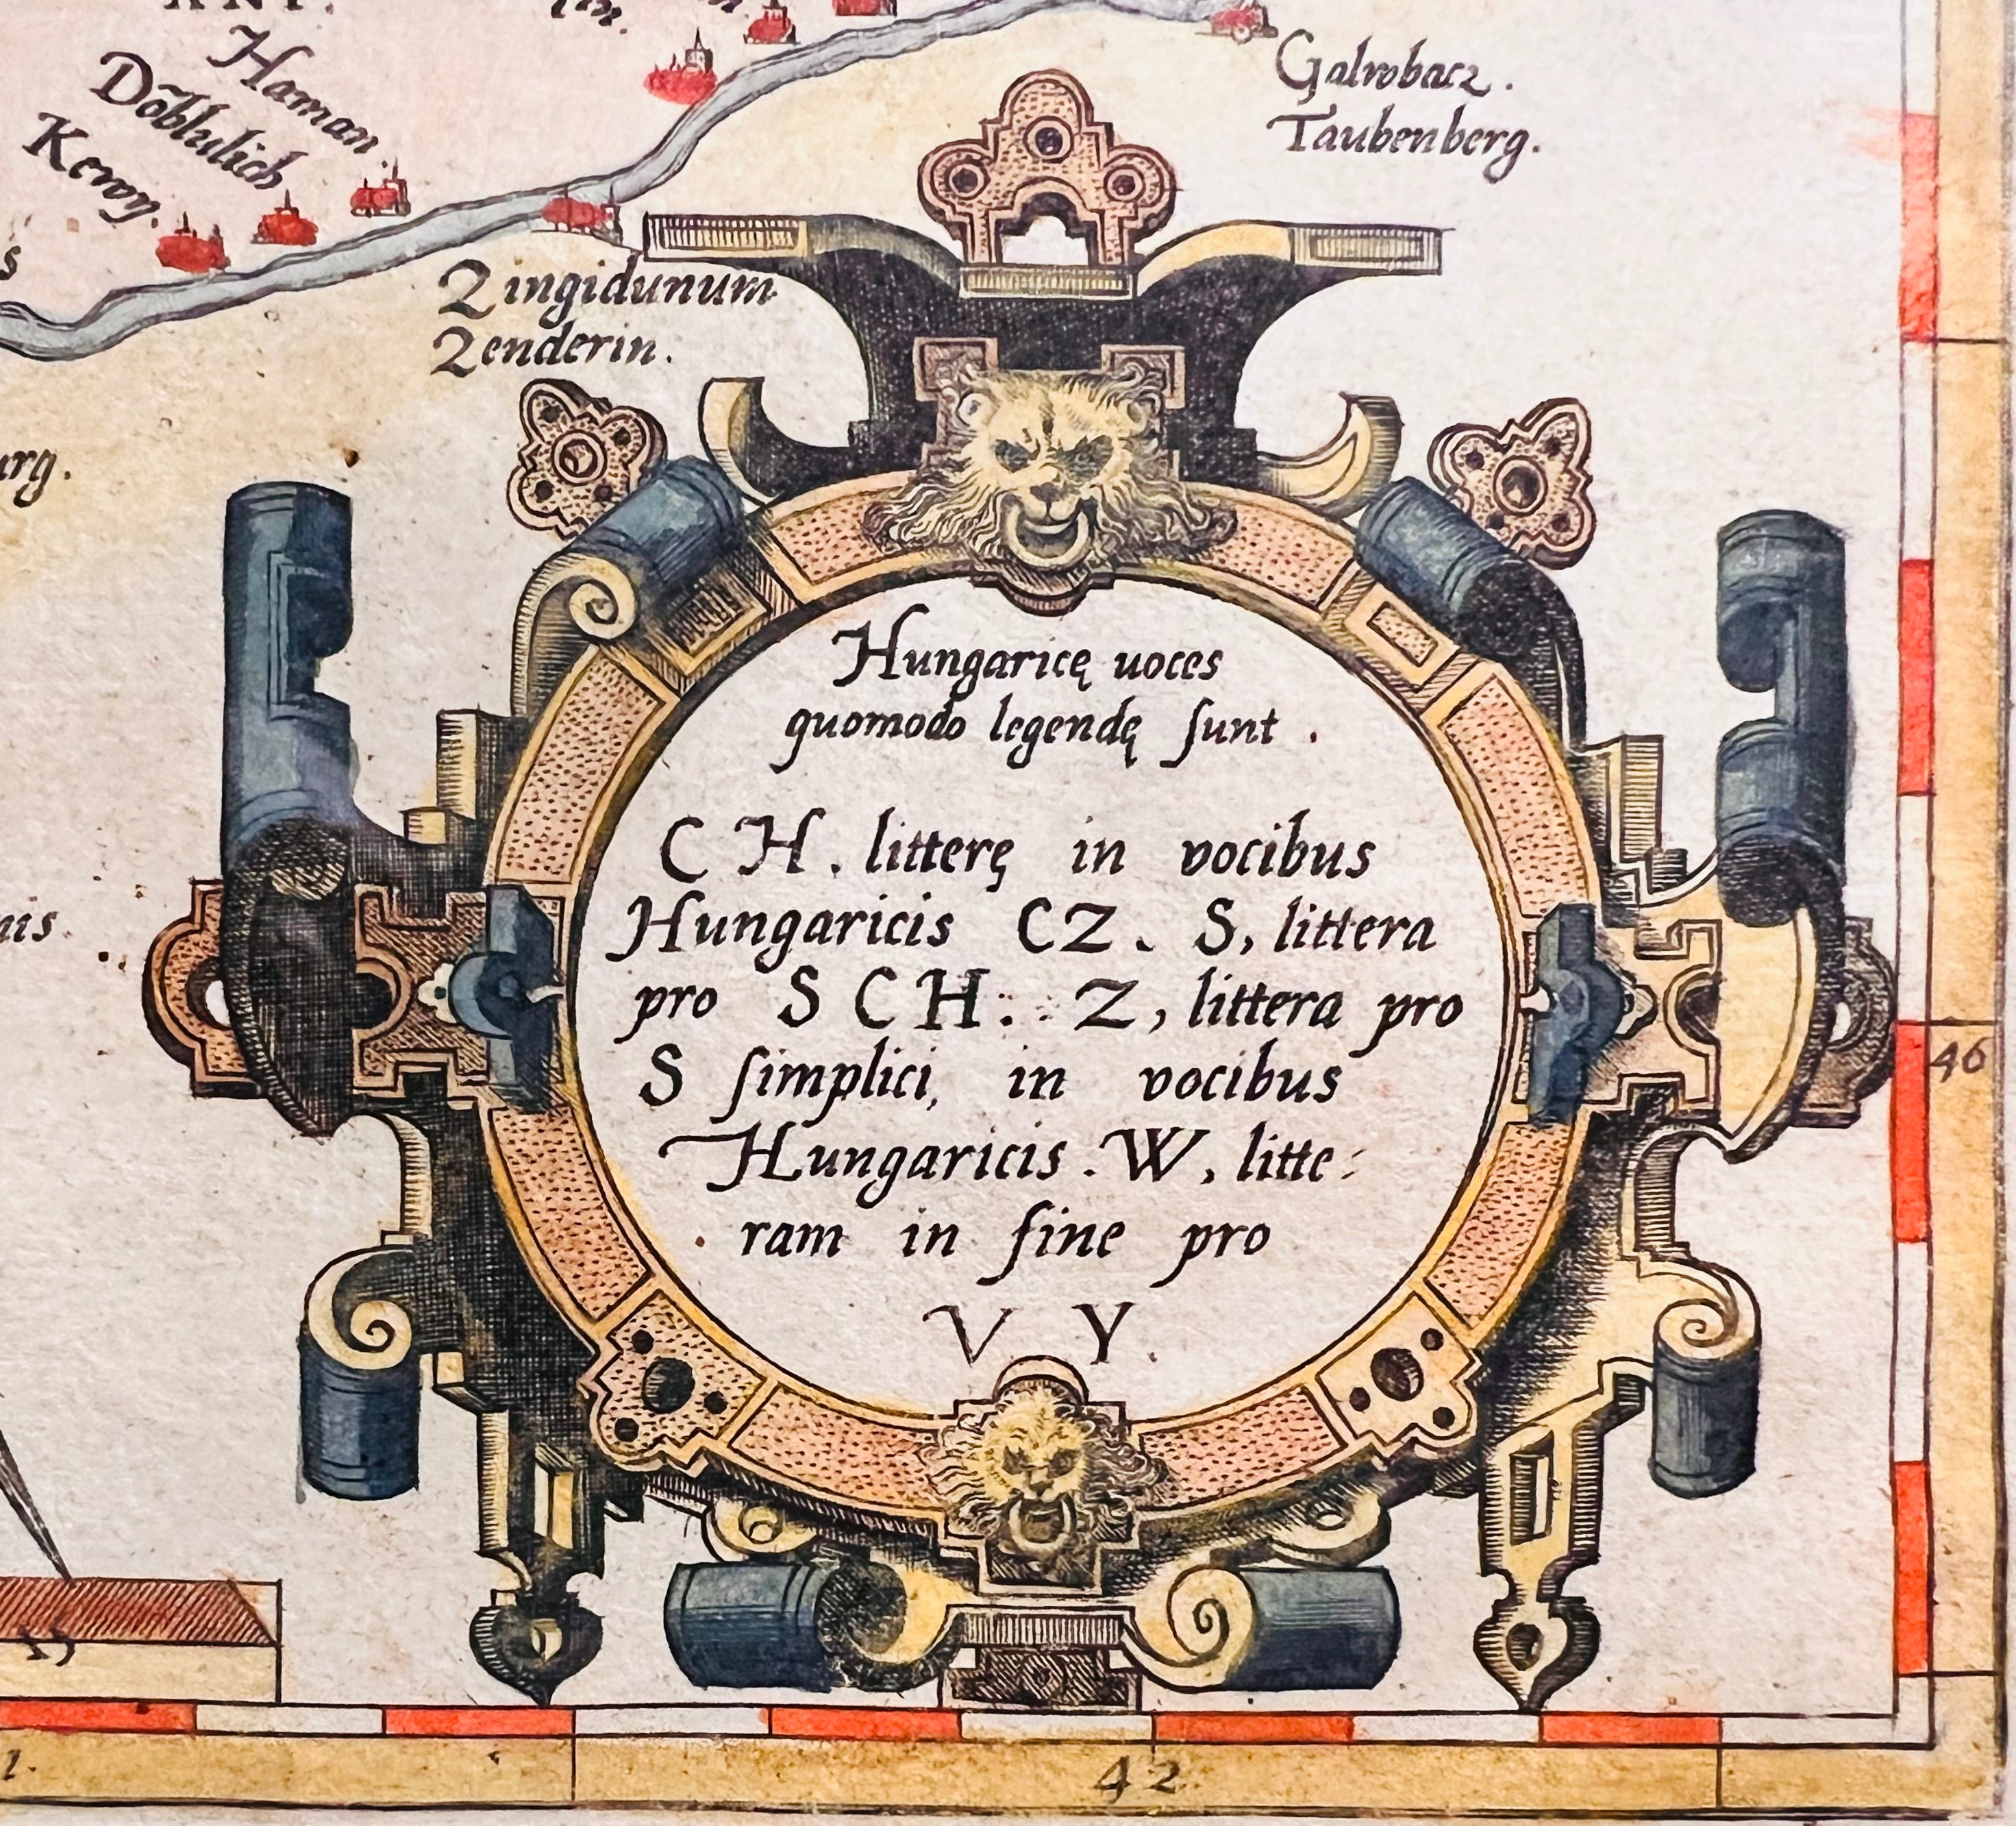 Haman.
Dõblulich
Keroy.
Galwobacz.
Taubenberg.
Zingidunum
Zenderin.
Hungaricę uoces
quomodo legendę ſunt.
C H. litterę in vocibus
Hungaricis CZ. S, littera
pro S C H: Z, littera pro
S ſimplici, in vocibus
Hungaricis. W, litte:
ram in fine pro
V Y.
46
42